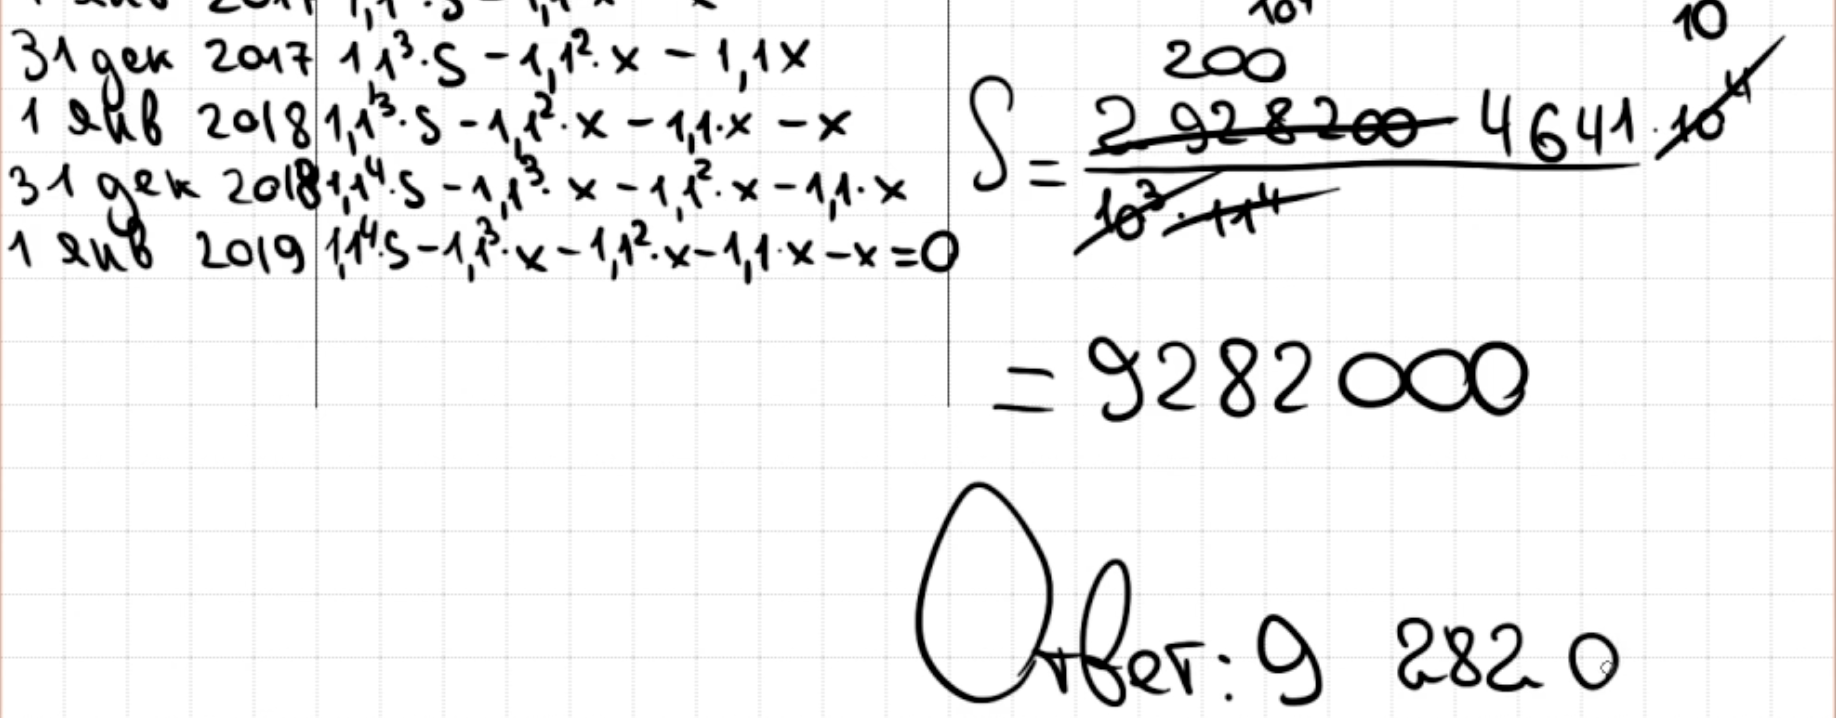 31 дек 2017 1,1³·S - 1,1²·x - 1,1x
1 янв 2018 1,1³·S - 1,1²·x - 1,1·x - x
31 дек 2018 1,1⁴·S - 1,1³·x - 1,1²·x - 1,1·x
1 янв 2019 1,1⁴·S - 1,1³·x - 1,1²·x - 1,1·x - x = 0
10
200
S = 2 928 200 4641·10⁴
10³·11⁴
= 9282000
Ответ: 9 282 0